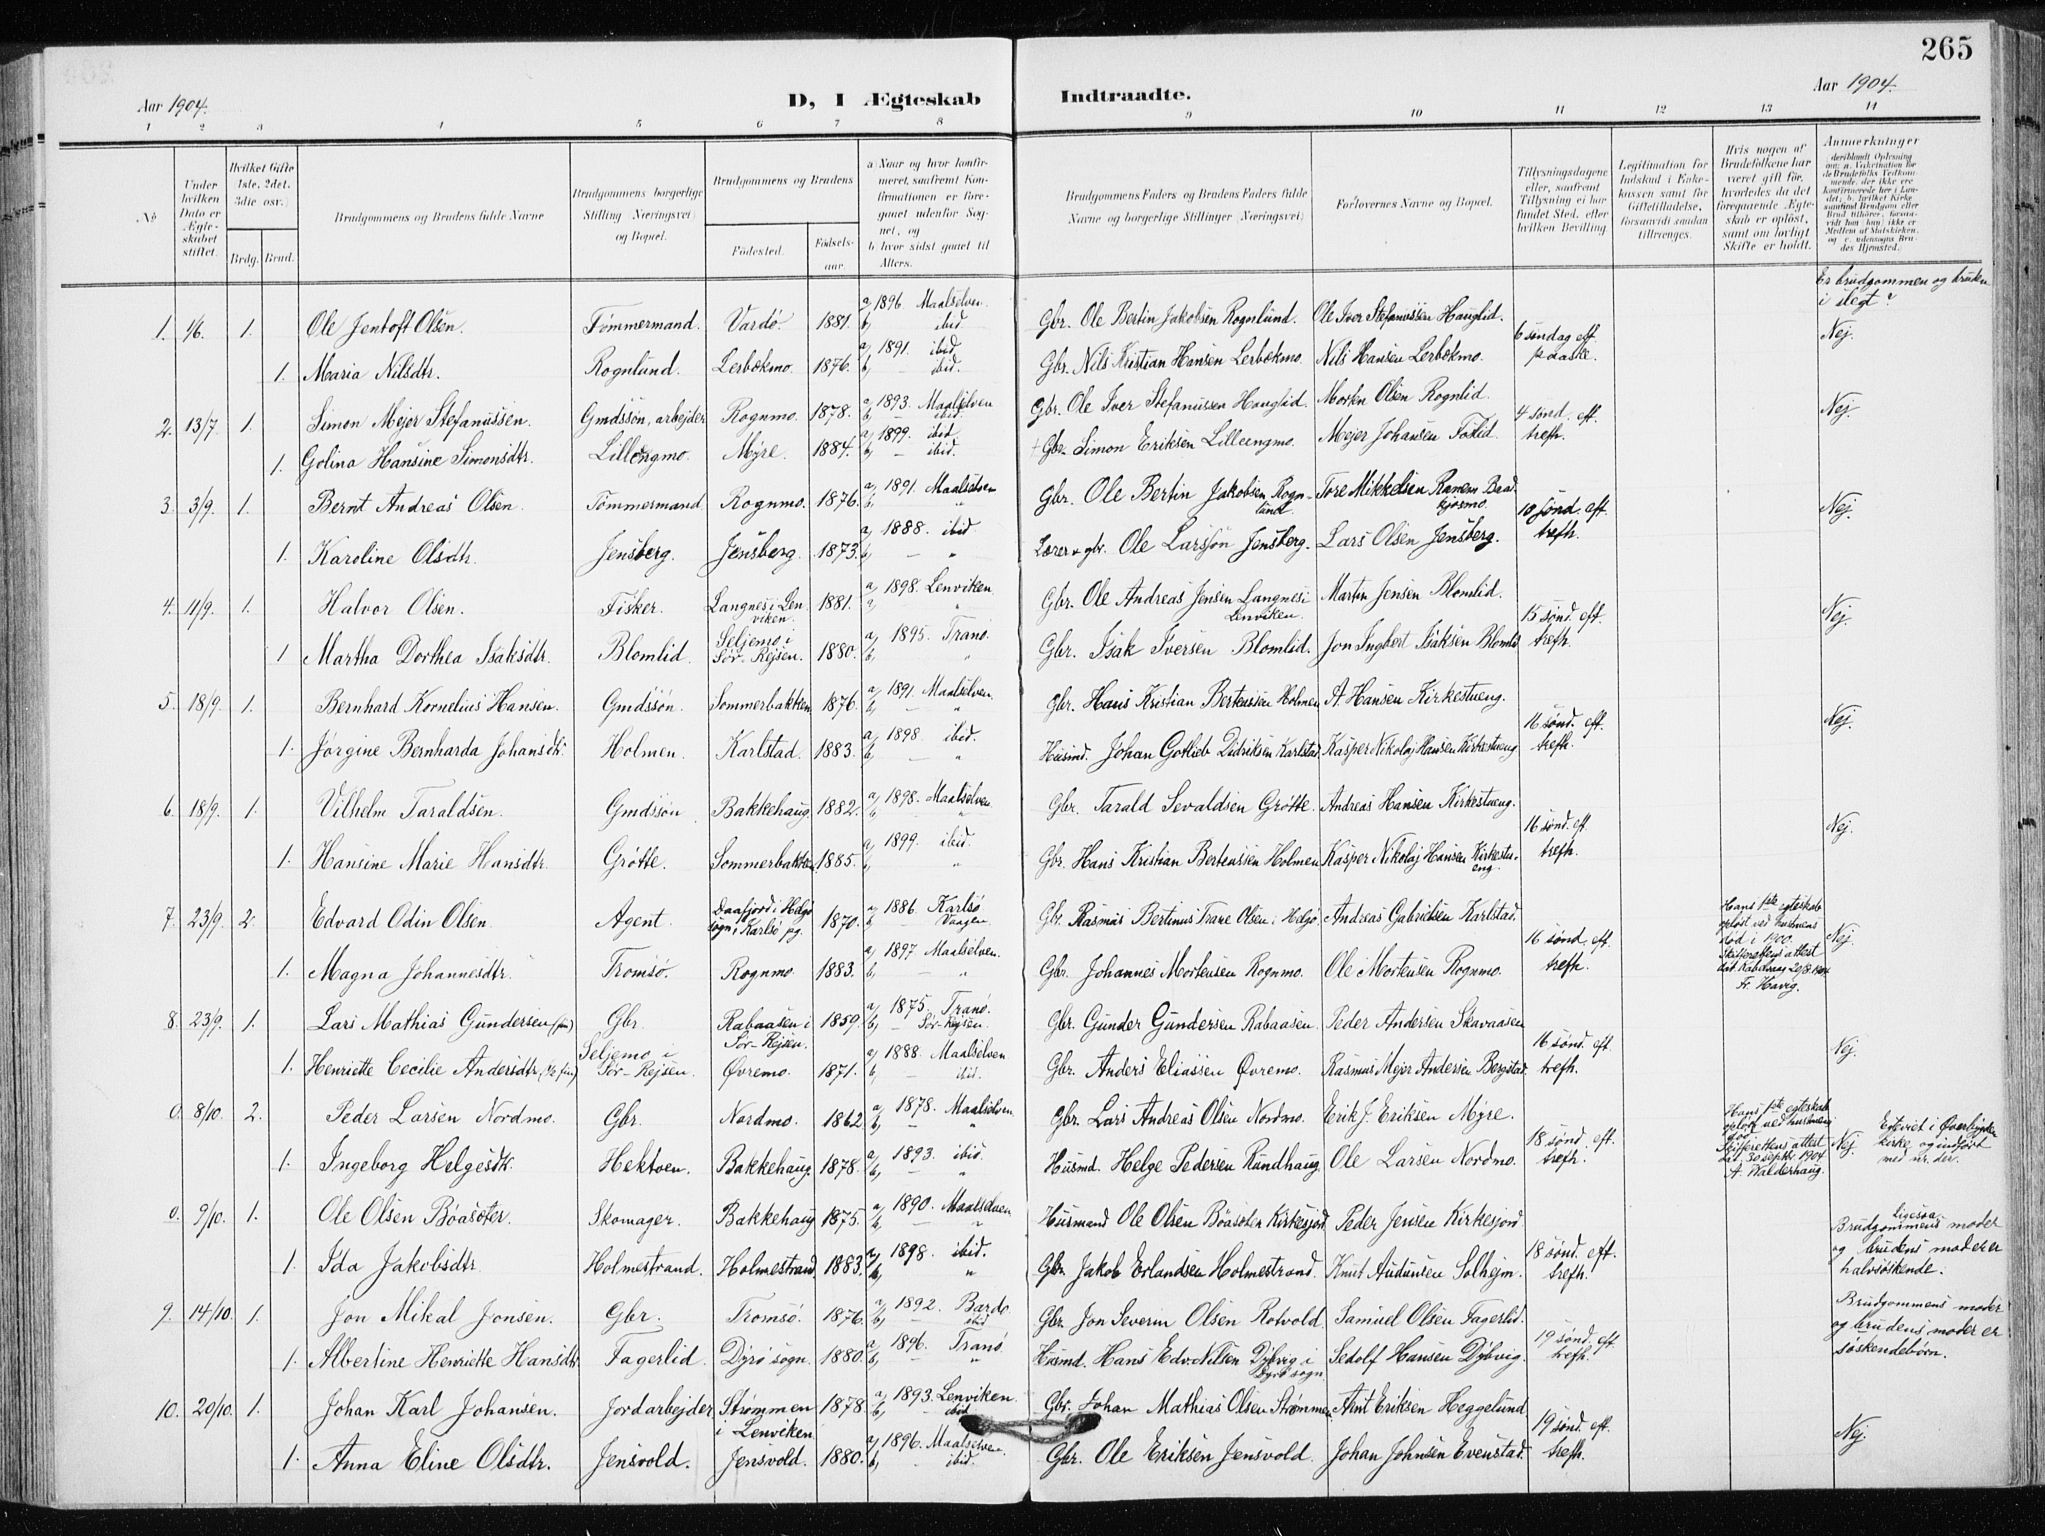 265
Aar 1904.
D, I Ægteskab Indtraadte.
Aar 1904.
1 2 3 4 5 6 7 8 9 10 11 12 13 14
No
Under hvilken Dato er Ægteskabet stiftet.
Hvilket Gifte 1ste, 2det, 3die osv.)
Brdg. Brud.
Brudgommens og Brudens fulde Navne
Brudgommens borgerlige Stilling (Næringsvei) og Bopæl.
Brudgommens og Brudens
Fødested. Fødselsaar
a) Naar og hvor konfirmeret, saafremt Konfirmationen er foregaaet udenfor Sognet, og
b) hvor sidst gaaet til Alters.
Brudgommens Faders og Brudens Faders fulde Navne og borgerlige Stillinger (Næringsvei)
Forlovernes Navne og Bopæl.
Tillysningsdagene eller, saafremt Tillysning ei har fundet Sted, efter hvilken Bevilling.
Legitimation for Indskud i Enkekassen samt for Giftetilladelse, forsaavidt saadan tiltrænges.
Hvis nogen af Brudefolkene har været gift før, hvorledes da det foregaaende Ægteskab er opløst, samt om lovligt Skifte er holdt.
Anmerkninger
deriblandt Oplysning om: a. Vakcination for de Brudefolks Vedkommende, der ikke ere konfirmerede her i Landet; b. hvilket Kirkesamfund Brudgom eller Brud tilhører, forsaavidt han (hun) ikke er Medlem af Statskirken, og c. udensogns Brudes Hjemsted.
Er brudgommen og bruden i slegt?
1. 1/6. 1. Ole Jentoft Olsen. Tømmermand. Vardø. 1881. a, 1896 Maalselven. b, ibid. Gbr. Ole Bertin Jakobsen Rognlund. Ole Iver Stefanussen Hauglid. 6 søndag eft. paaske. Nej.
1. Maria Nilsdtr. Rognlund. Lerbækmo. 1876. a, 1891. ibid. b, — ibid. Gbr. Nils Kristian Hansen Lerbækmo. Nils Hansen Lerbækmo.
2. 13/7. 1. Simon Mejer Stefanussen. Gmdssøn, arbejder Rognmo. 1878. a, 1893. Maalselven b, — ibid. Gbr. Ole Iver Stefanussen Hauglid. Morten Olsen Rognlid. 4 sønd. eft. trefh. Nej.
1. Golina Hansine Simonsdtr. Lillengmo. Myre. 1884. a, 1899. ibid. b, — ibid. + Gbr. Simon Eriksen Lilleengmo. Mejer Johansen Foslid.
3. 3/9. 1. Bernt Andreas Olsen. Tømmermand. Rognmo. 1876. a, 1891. Maalselven b, „ Gbr. Ole Bertin Jakobsen Rognlund. Tore Mikkelsen Ranem 10 sønd. eft. trefh. Nej.
1. Karoline Olsdtr. Jensberg. Jensberg. 1873. a, 1888. ibid b, — „ Lærer & gbr. Ole Larssøn Jensberg. Lars Olsen Jensberg.
4. 11/9. 1. Halvor Olsen. Fisker. Langnes i Lenviken. 1881. a, 1898. Lenviken a, „ Gbr. Ole Andreas Jensen Langnes i Lenviken. Martin Jensen Blomlid. 15 sønd. eft. trefh. Nej.
1 Martha Dorthea Isaksdtr. Blomlid. Seljemo i Sør-Rejsen. 1880. a, 1895. Tranø. b, „ Gbr. Isak Iversen Blomlid. Jon Ingbert Isaksen Blomlid
5. 18/9. 1. Bernhard Kornelius Hansen. Gmdssøn. Sommerbakken 1876. a, 1891. Maalselven. b, — „ Gbr. Hans Kristian Berteussen Holmen A. Hansen Kirkestueng. 16 sønd. eft. trefh. Nej.
1. Jørgine Bernharda Johansdtr. Holmen. Karlstad. 1883. a, 1898. ibid. b, — „ Husmd. Johan Gotlieb Didriksen Karlstad Kasper Nikolaj Hansen Kirkestueng
6. 18/9. 1. Vilhelm Taraldsen. Gmdssøn Bakkehaug 1882. a, 1898. Maalselven b, — „ Gbr. Tarald Sevaldsen Grøtte. Andreas Hansen Kirkestueng. 16 sønd. eft. trefh. Nej.
1. Hansine Marie Hansdtr. Grøtte. Sommerbakken 1885. a, 1899. ibid. b, „ Gbr. Hans Kristian Berteussen Holmen Kasper Nikolaj Hansen Kirkestueng.
7. 23/9. 2. Edvard Odin Olsen. Agent. Daafjord i Helgø sogn i Karlsø pg. 1870. a, 1886 Karlsø b, — Vaagen Gbr. Rasmus Bertinus Trane Olsen i Helgø. Andreas Gabrielsen Karlstad. 16 sønd. eft. trefh. Hans 1ste egteskab opløst ved hustruens død i 1900. Skifterettens attest dat. 20/8 1904 Fr. Havig. Nej.
1. Magna Johannesdtr. Tromsø. Rognmo 1883. a, 1897. Maalselven. b, — „ Gbr. Johannes Mortensen Rognmo. Ole Mortensen Rognmo.
8. 23/9. 1. Lars Mathias Gundersen (fin) Gbr. Rabaasen i Sør-Rejsen. 1859. a, 1875. Tranø. b, — Sør-Rejsen. Gbr. Gunder Gundersen Rabaasen. Peder Andersen Skavaasen 16 sønd. eft. trefh. Nej.
1. Henriette Cecilie Andersdtr. (½ fin) Seljemo i Sør-Rejsen. Øvremo. 1871. a, 1888. Maalselven b, — ibid. Gbr. Anders Eliassen Øvremo. Rasmus Mejer Andersen Bergstad.
0. 8/10. 2. Peder Larsen Nordmo. Gbr. Nordmo. 1862 a, 1878. Maalselven. b, — „ Gbr. Lars Andreas Olsen Nordmo. Erik J. Eriksen Myre. 18 sønd. eft. trefh. Hans 1ste egteskab opløst ved hustruens død Skifterettens attest dat. 30 septbr. 1904 A. Walderhaug. Nej. Egteviet i Øverbygden kirke og indført med nr. der.
1. Ingeborg Helgesdtr. Hektoen. Bakkehaug. 1878. a, 1893. ibid. b, — „ Husmd. Helge Pedersen Rundhaug. Ole Larsen Nordmo.
0. 9/10. 1. Ole Olsen Bøasøter. Skomager. Bakkehaug 1875. a, 1890. Maalselven b, — „ Husmand Ole Olsen Bøasøter Kirkesjord. Peder Jensen Kirkesjord 18 sønd. eft. trefh. Ligesaa. Brudgommens moder og brudens moder er halvsøskende.
1. Ida Jakobsdtr. Holmestrand. Holmestrand 1883. a, 1898. ibid. b, „ Gbr. Jakob Erlandsen Holmestrand. Knut Audunsen Solhejm.
9. 14/10. 1. Jon Mikal Jonsen. Gbr. Tromsø. 1876. a, 1892. Bardo b, — ibid Gbr. Jon Severin Olsen Rotvold. Samuel Olsen Fagerlid. 19 sønd. eft. trefh. Brudgommens moder og brudens moder er søskendebørn.
1. Albertine Henriette Hansdtr. Fagerlid. Dyrø sogn. 1880. a, 1896. Tranø. b, — „ Husmd. Hans Edv. Nilsen Dybvig i Dyrø sogn. Sedolf Hansen Dybvig.
10. 20/10. 1. Johan Karl Johansen. Jordarbejder Strømmen i Lenviken 1878. a, 1893. Lenviken b, — ibid Gbr. Johan Mathias Olsen Strømmen Arnt Eriksen Heggelund 19 sønd. eft. trefh. Nej.
1. Anna Eline Olsdtr. Jensvold. Jensvold. 1880. a, 1896. Maalselven. b, — ibid. Gbr. Ole Eriksen Jensvold. Johan Johnsen Evenstad.